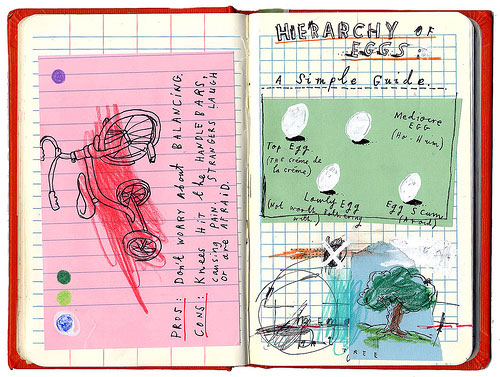 PROS: Don't WORRY about BALANCING.
CONS: Knees Hit the HANDLEBARS,
causing PAIN. STRANGERS LAUGH
or are AFRAID.
HiERARCHY OF
EGGS:
A Simple Guide.
Top Egg.
(THE créme de
la créme)
Mediocre
EGG
(Ho-Hum)
Lowly Egg
(Not worth bothering
with.)
Egg Scum
(Avoid)